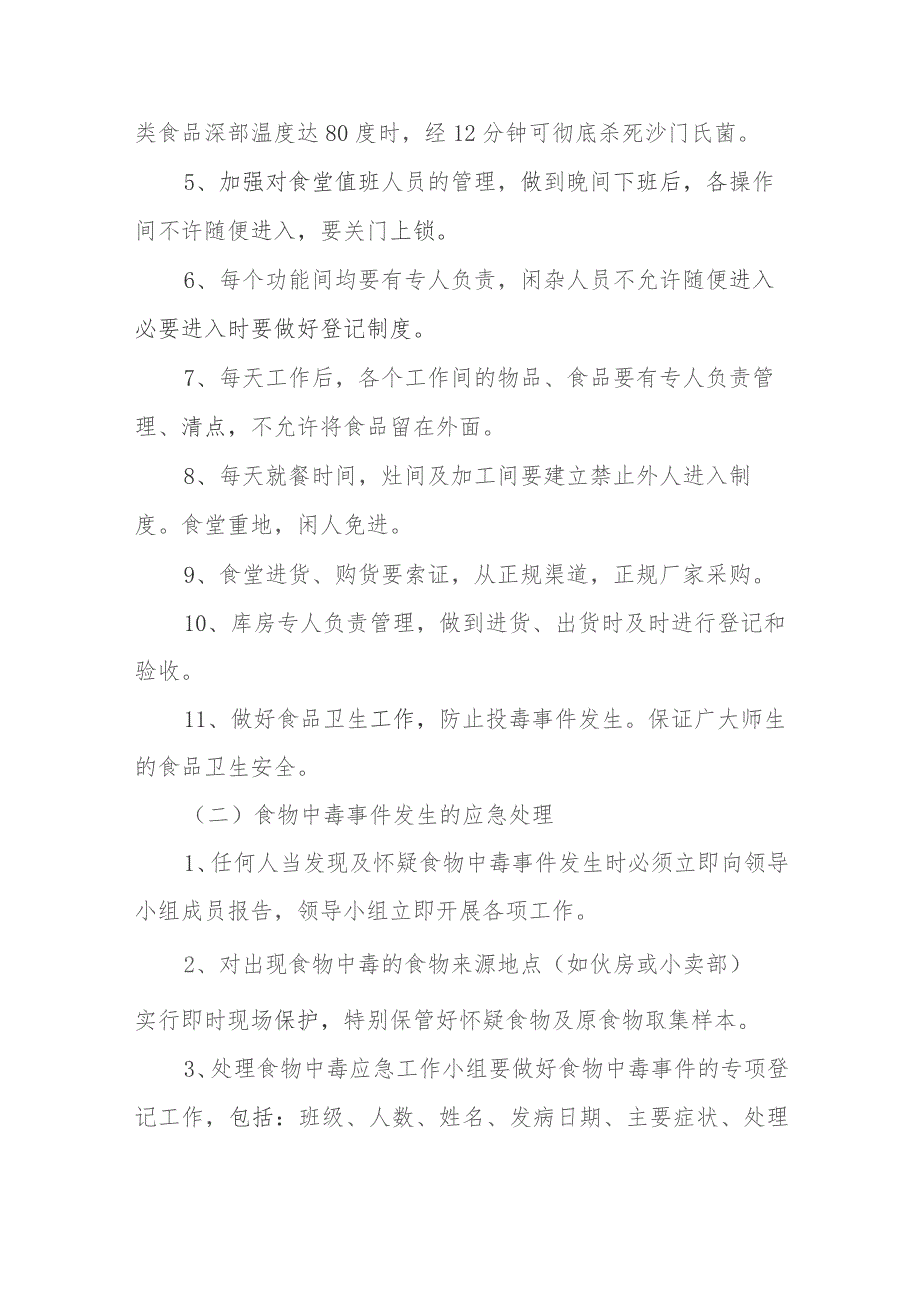 类食品深部温度达80度时，经12分钟可彻底杀死沙门氏菌。
5、加强对食堂值班人员的管理，做到晚间下班后，各操作
间不许随便进入，要关门上锁。
6、每个功能间均要有专人负责，闲杂人员不允许随便进入
必要进入时要做好登记制度。
7、每天工作后，各个工作间的物品、食品要有专人负责管
理、清点，不允许将食品留在外面。
8、每天就餐时间，灶间及加工间要建立禁止外人进入制
度。食堂重地，闲人免进。
9、食堂进货、购货要索证，从正规渠道，正规厂家采购。
10、库房专人负责管理，做到进货、出货时及时进行登记和
验收。
11、做好食品卫生工作，防止投毒事件发生。保证广大师生
的食品卫生安全。
（二）食物中毒事件发生的应急处理
1、任何人当发现及怀疑食物中毒事件发生时必须立即向领导
小组成员报告，领导小组立即开展各项工作。
2、对出现食物中毒的食物来源地点（如伙房或小卖部）
实行即时现场保护，特别保管好怀疑食物及原食物取集样本。
3、处理食物中毒应急工作小组要做好食物中毒事件的专项登
记工作，包括：班级、人数、姓名、发病日期、主要症状、处理